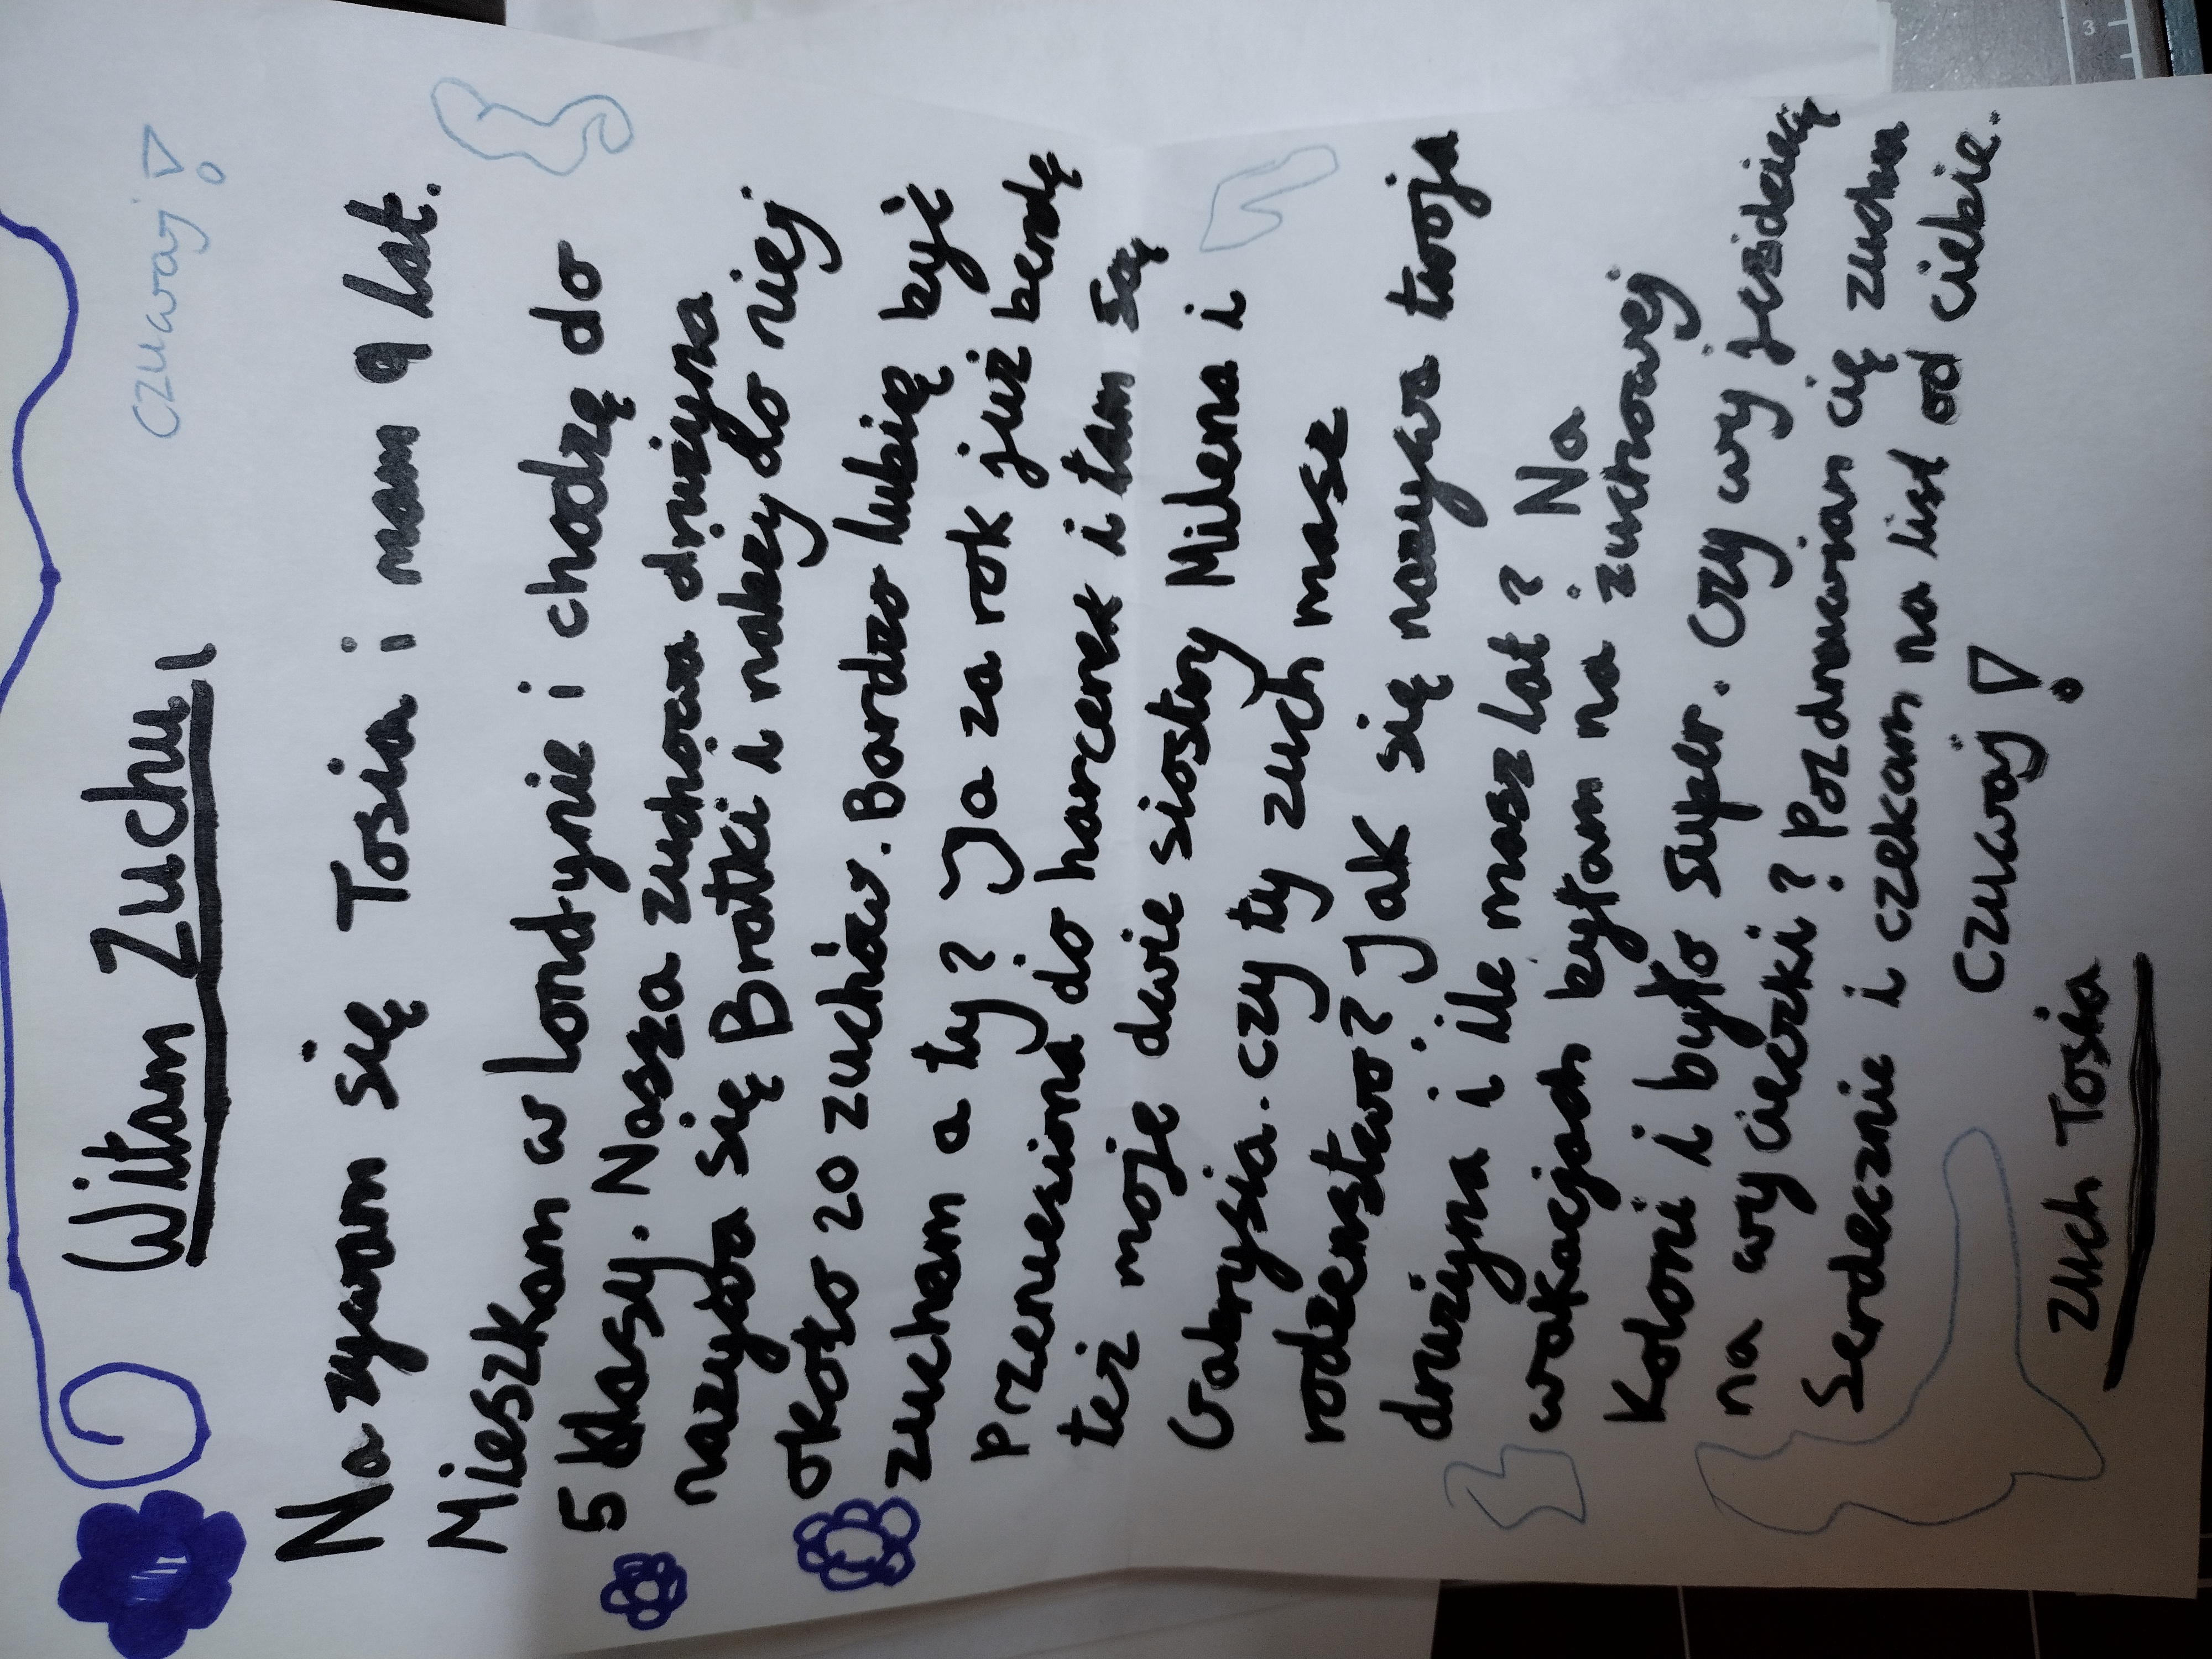 Czuwaj!
Witam Zuchu!
Nazywam się Tosia i mam 9 lat.
Mieszkam w londynie i chodzę do
5 klasy. Nasza zuchowa drużyna
nazywa się Bratki i należy do niej
około 20 zuchów. Bardzo lubię być
zucham a ty? Ja za rok już bendę
przeniesiona do harcerek i tam są
też moje dwie siostry Milena i
Gabrysia. czy ty zuch masz
rodzenstwo? Jak się nazywa twoja
drużyna i ile masz lat? Na
wakacjach byłam na zuchowej
Koloni i było super. Czy wy jezdzicię
na wycieczki? Pozdrawiam cię zuchu
Serdecznie i czekam na list od ciebie.
Czuwaj!
zuch Tosia
3